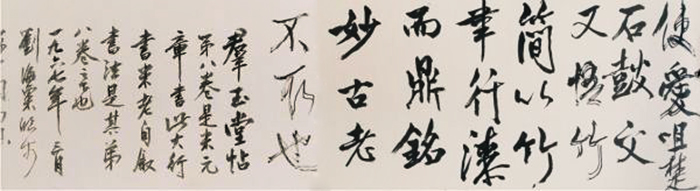 便愛咀楚
石鼓文
又悟竹
簡以竹
聿行漆
而鼎銘
妙古老
不取也
羣玉堂帖
第八卷是米元
章書此大行
書米老自叙
書法是其第
八卷之也
一九六七年三月
劉海粟臨於